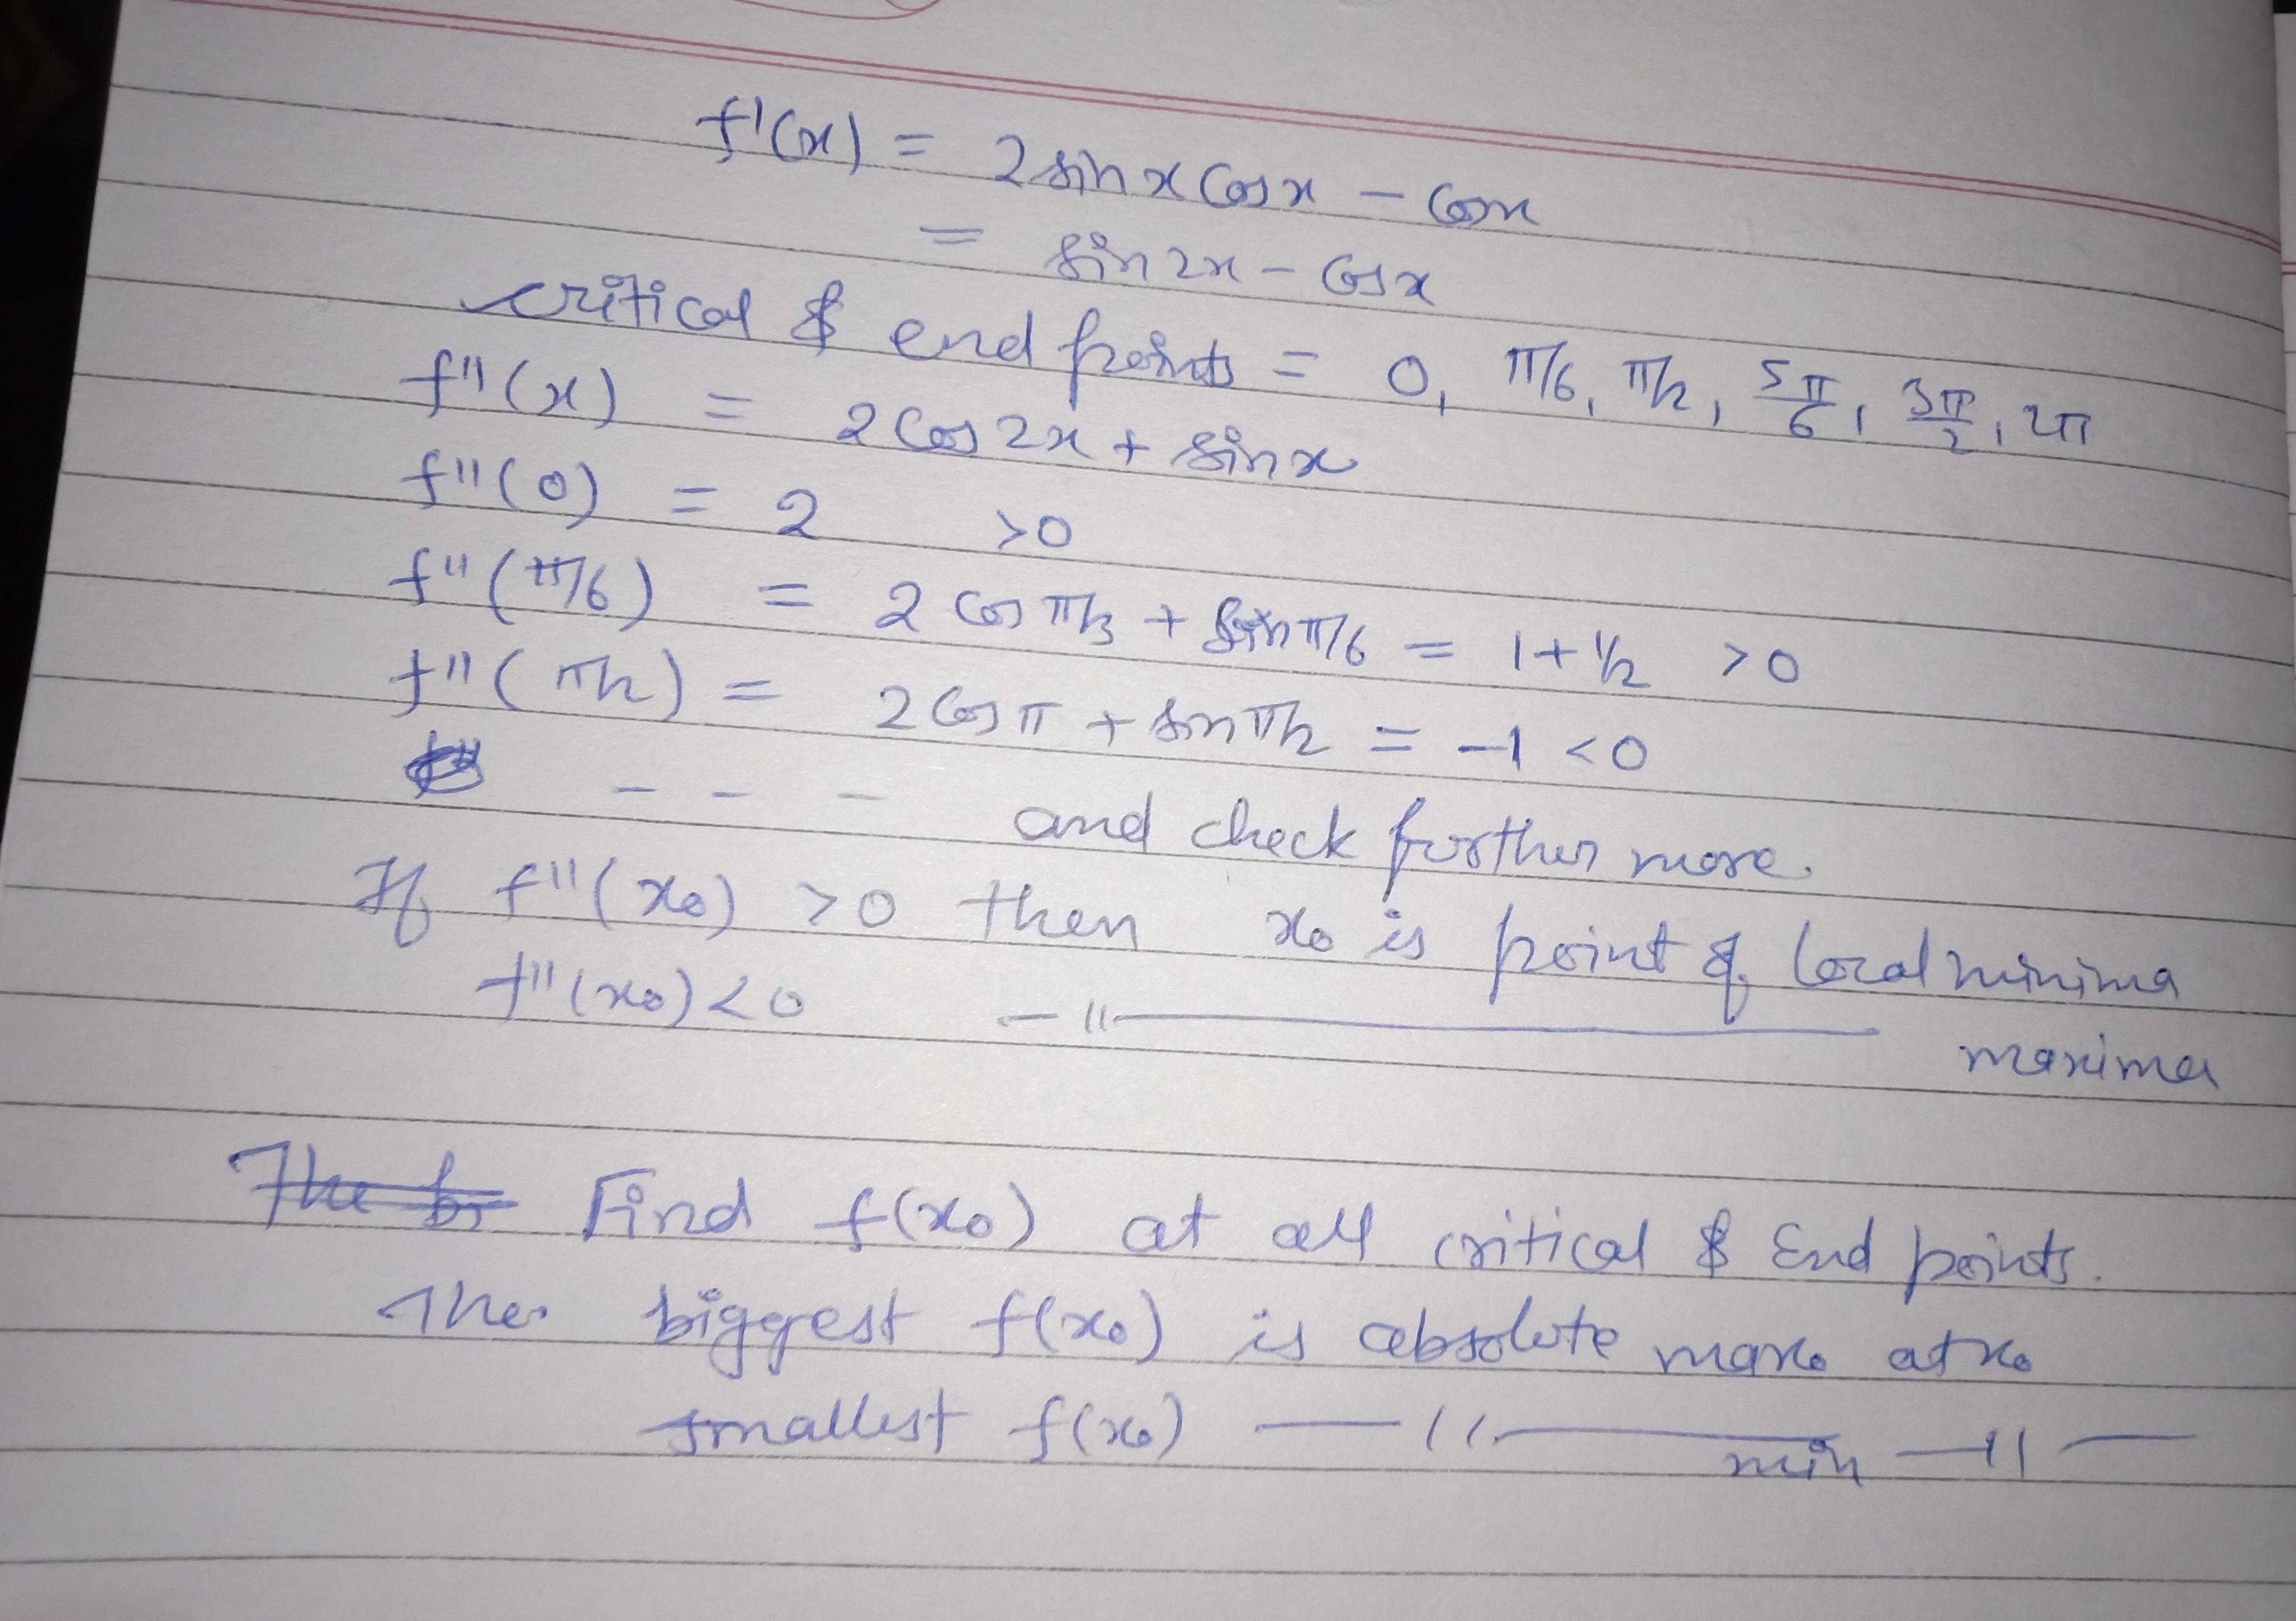 f'(x) = 2 sin x cos x - cos x
= sin 2x - cos x
critical & end points = 0, π/6, π/2, 5π/6, 3π/2, 2π
f''(x) = 2 cos 2x + sin x
f''(0) = 2 >0
f''(π/6) = 2 cos π/3 + sin π/6 = 1 + 1/2 >0
f''(π/2) = 2 cos π + sin π/2 = -1 <0
- - - and check further more.
If f''(x₀) >0 then x₀ is point of local minima
f''(x₀) <0 —〃— maxima
Find f(x₀) at all critical & End points.
The biggest f(x₀) is absolute max. at x₀
smallest f(x₀) —〃— min —〃—